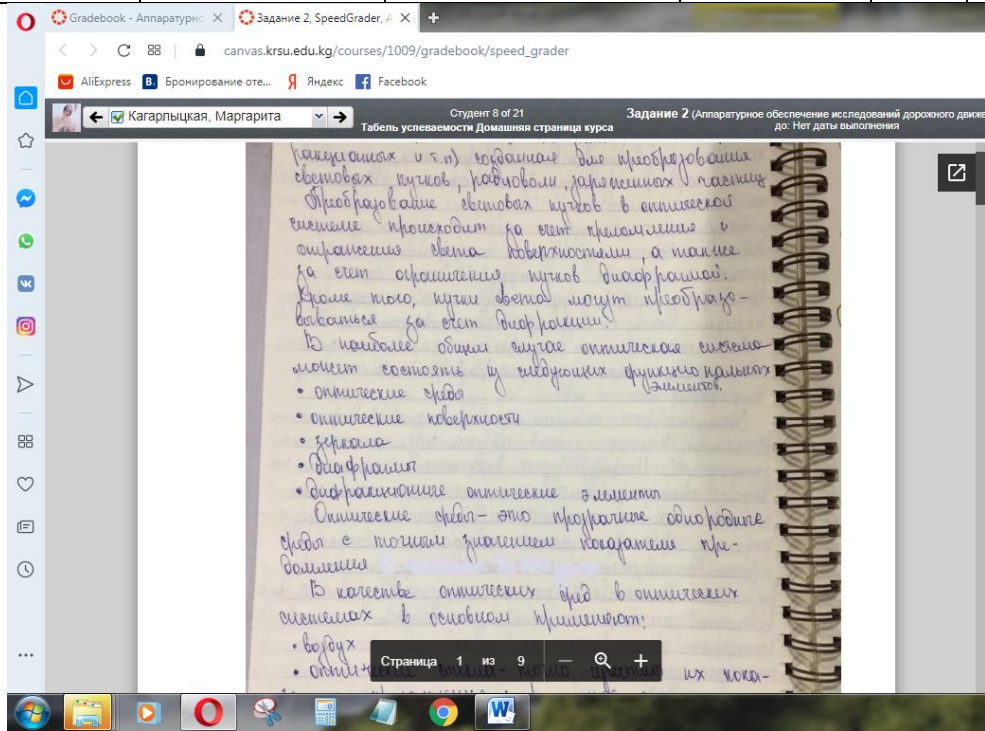 Gradebook - Аппаратурно
Задание 2, SpeedGrader, А
canvas.krsu.edu.kg/courses/1009/gradebook/speed_grader
AliExpress
B. Бронирование оте...
Я Яндекс
Facebook
Кагарлыцкая, Маргарита
Студент 8 of 21
Табель успеваемости Домашняя страница курса
Задание 2 (Аппаратурное обеспечение исследований дорожного движе
до: Нет даты выполнения
и т.п) созданная для преобразования
световых пучков, радиоволн, заряженных частиц
Преобразование световых пучков в оптической
системе происходит за счет преломления и
отражения света поверхностями, а также
за счет ограничения пучков диафрагмой.
Кроме того, пучки света могут преобразо-
вываться за счет дифракции.
В наиболее общем случае оптическая система
может состоять из следующих функциональных
элементов.
• оптические среды
• оптические поверхности
• зеркала
• диафрагмы
• дифракционные оптические элементы
Оптические среды - это прозрачные однородные
среды с точным значением показателя пре-
ломления
В качестве оптических сред в оптических
системах в основном применяют:
• воздух
Страница 1 из 9
их пока-